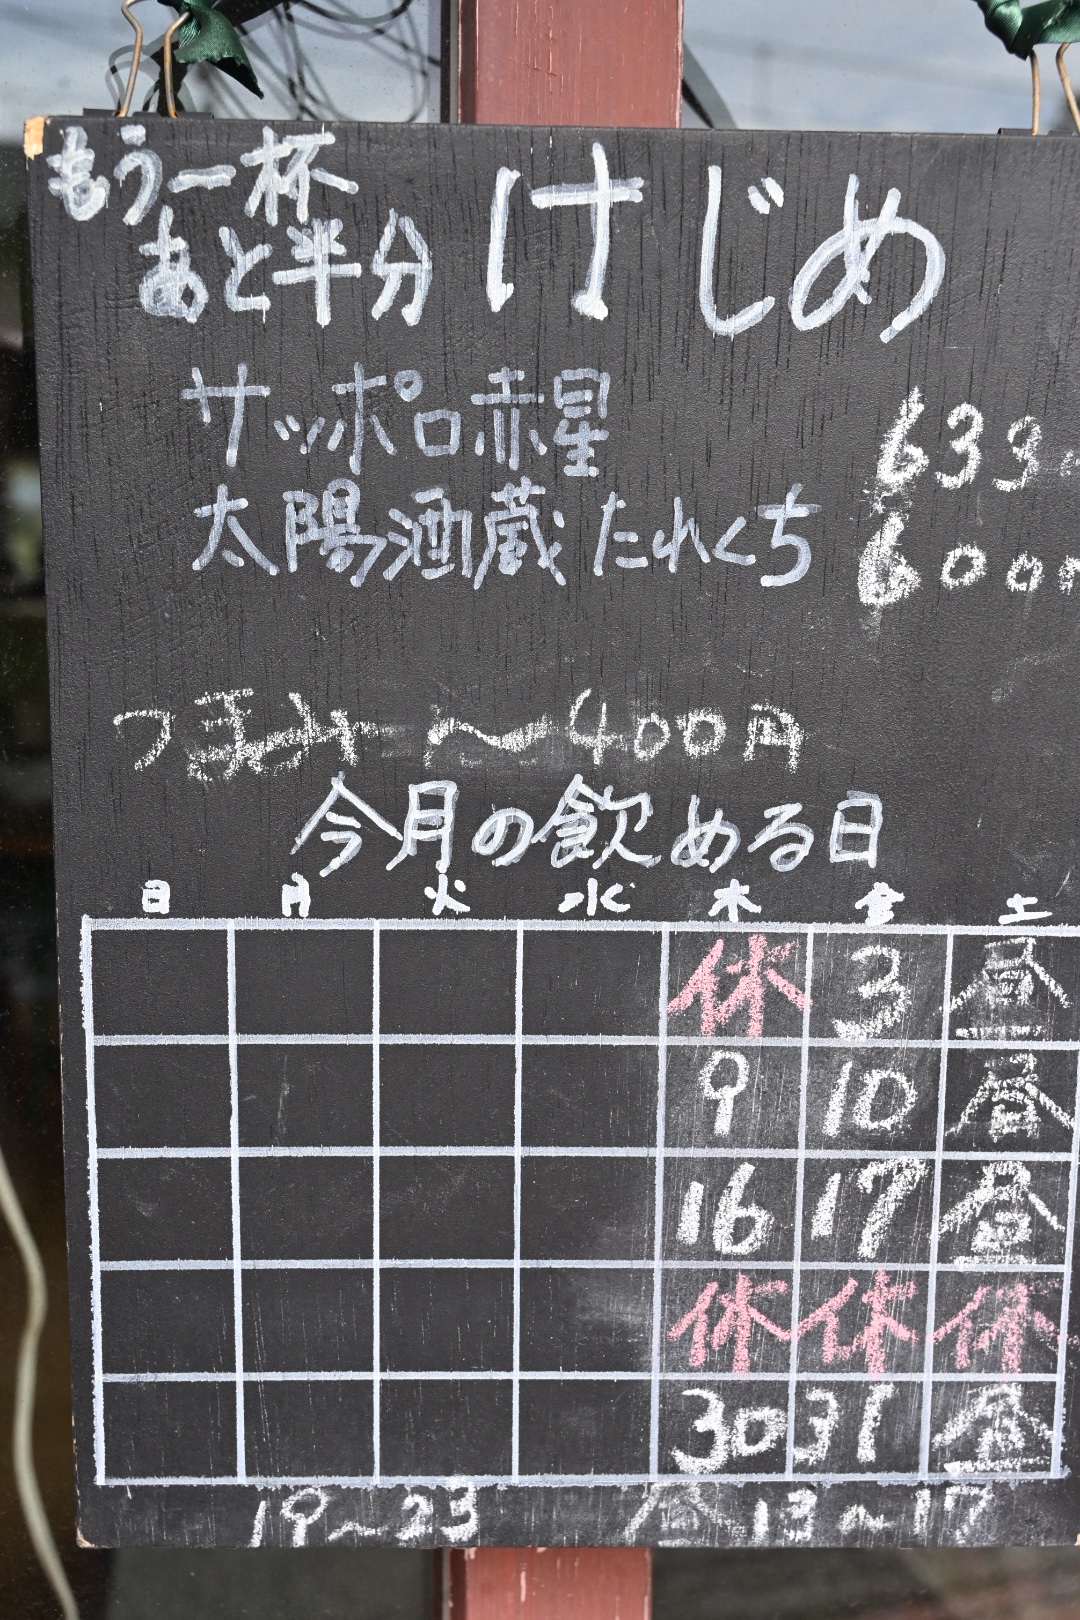 もう一杯
あと半分
けじめ
サッポロ赤星 633
太陽酒蔵 たれくち 600
つまみ 〜400円
今月の飲める日
日 月 火 水 木 金 土
休 3 昼
9 10 昼
16 17 昼
休 休 休
30 31 昼
19〜23 昼 13〜17